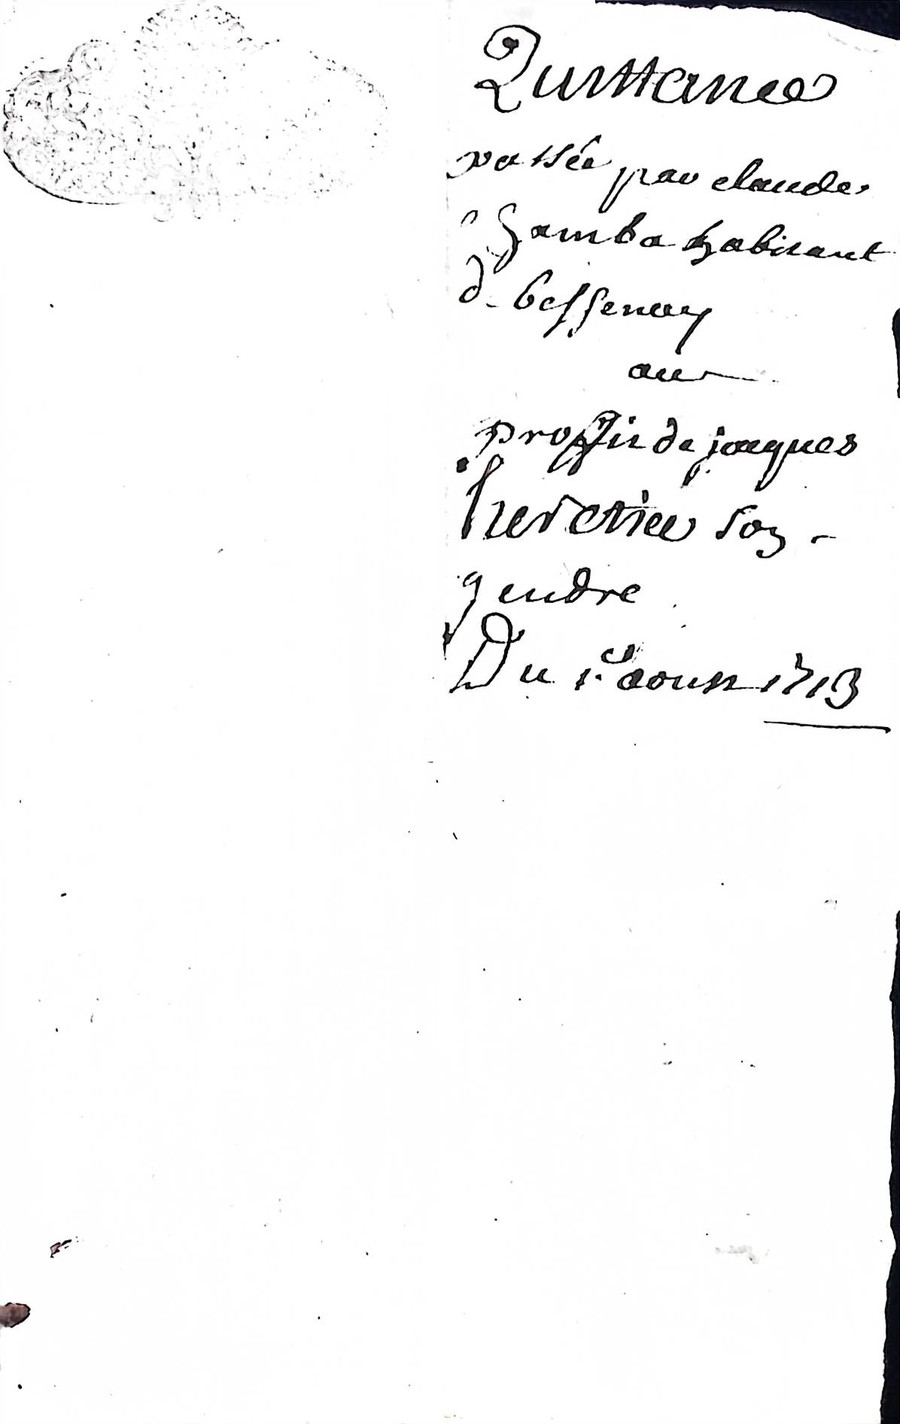 Quittance
passée par claude
Jamba habitant
de bessenay
au
proffit de jacques
son
gendre
Du 1er aoust 1713